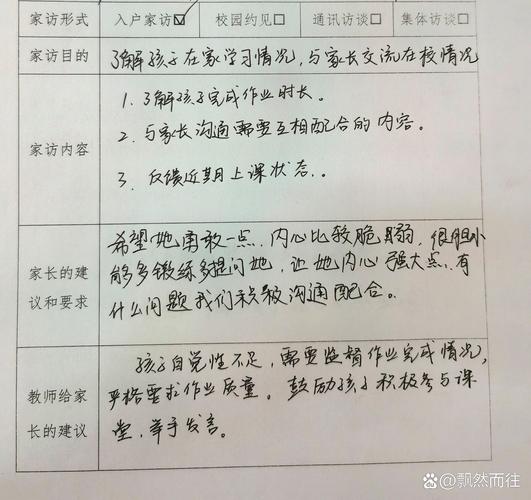 家访形式 入户家访☑ 校园约见□ 通讯访谈□ 集体访谈□
家访目的 了解孩子在家学习情况，与家长交流在校情况
1. 了解孩子完成作业时长。
2. 与家长沟通需要互相配合的内容。
家访内容
3. 反馈近期上课状态..
希望她勇敢一点，内心比较脆弱，很胆小
家长的建 能多多锻练多提问她，让她内心强大点，有
议和要求 什么问题我们积极沟通配合。
孩子自觉性不足，需要监督作业完成情况，
教师给家 严格要求作业质量。鼓励孩子积极参与课
长的建议 堂，举手发言。
百家号/飘然而往